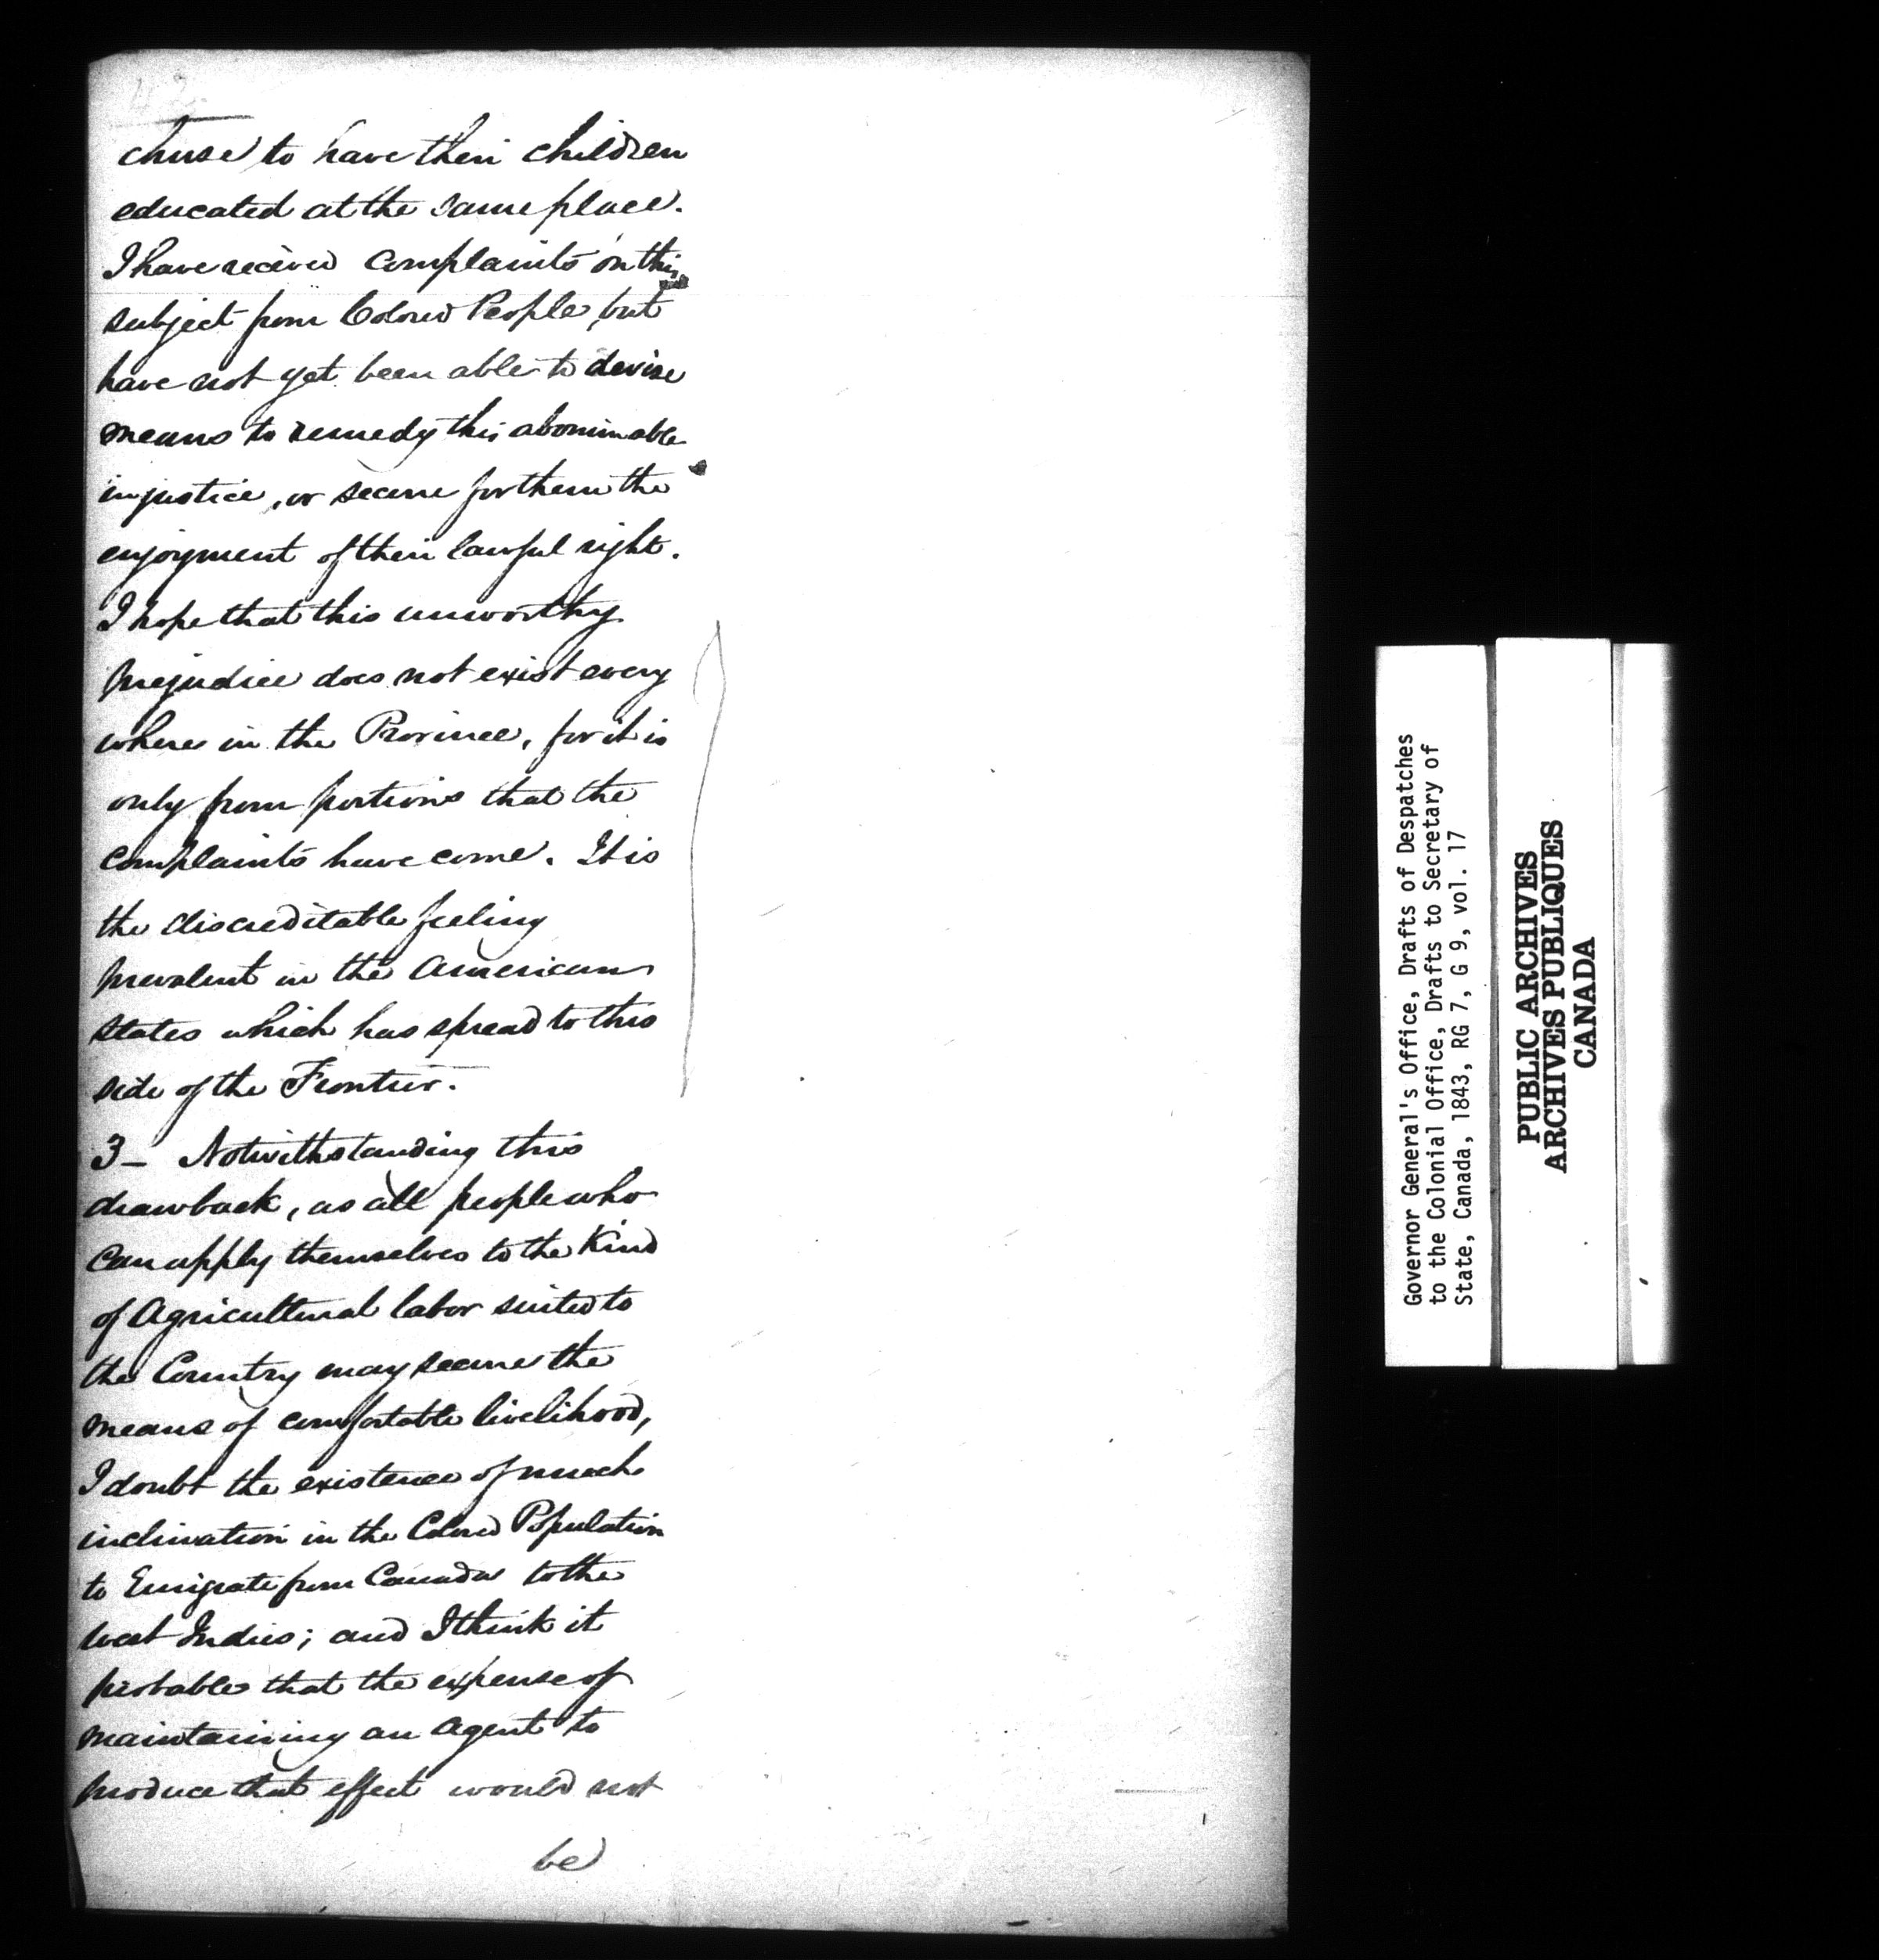 42
chuse to have their children
educated at the same place.
I have received complaints on this
subject from Colored People, but
have not yet been able to devise
means to remedy this abominable
injustice, or secure for them the
enjoyment of their lawful right.
I hope that this unworthy
prejudice does not exist every
where in the Province, for it is
only from portions that the
complaints have come. It is
the discreditable feeling
prevalent in the American
States which has spread to this
side of the Frontier.
3 - Notwithstanding this
drawback, as all people who
can apply themselves to the Kind
of Agricultural labor suited to
the Country may secure the
means of comfortable livelihood,
I doubt the existence of much
inclination in the Colored Population
to Emigrate from Canada to the
West Indies; and I think it
probable that the expense of
maintaining an Agent to
produce that effect would not
be
Governor General's Office, Drafts of Despatches
to the Colonial Office, Drafts to Secretary of
State, Canada, 1843, RG 7, G 9, vol. 17
PUBLIC ARCHIVES
ARCHIVES PUBLIQUES
CANADA